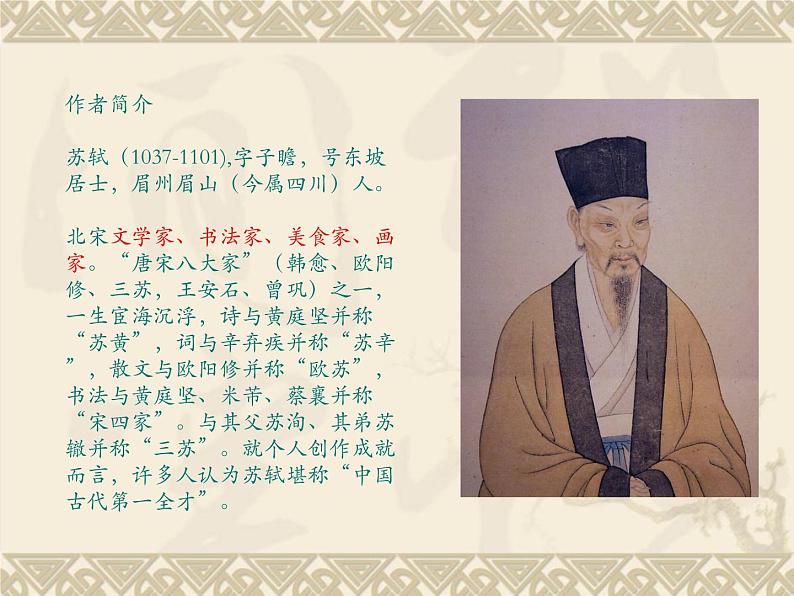 作者简介
苏轼（1037-1101),字子瞻，号东坡
居士，眉州眉山（今属四川）人。
北宋文学家、书法家、美食家、画
家。“唐宋八大家”（韩愈、欧阳
修、三苏，王安石、曾巩）之一，
一生宦海沉浮，诗与黄庭坚并称
“苏黄”，词与辛弃疾并称“苏辛
”，散文与欧阳修并称“欧苏”，
书法与黄庭坚、米芾、蔡襄并称
“宋四家”。与其父苏洵、其弟苏
辙并称“三苏”。就个人创作成就
而言，许多人认为苏轼堪称“中国
古代第一全才”。